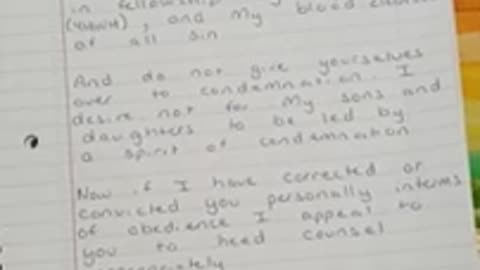 in fellowship
(YHWH), and my blood
of all sin
And do not give yourselves
over to condemnation. I
desire not for my sons and
daughters to be led by
a spirit of condemnation
Now if I have corrected or
convicted you personally interms
of obedience I appeal to
you to heed counsel